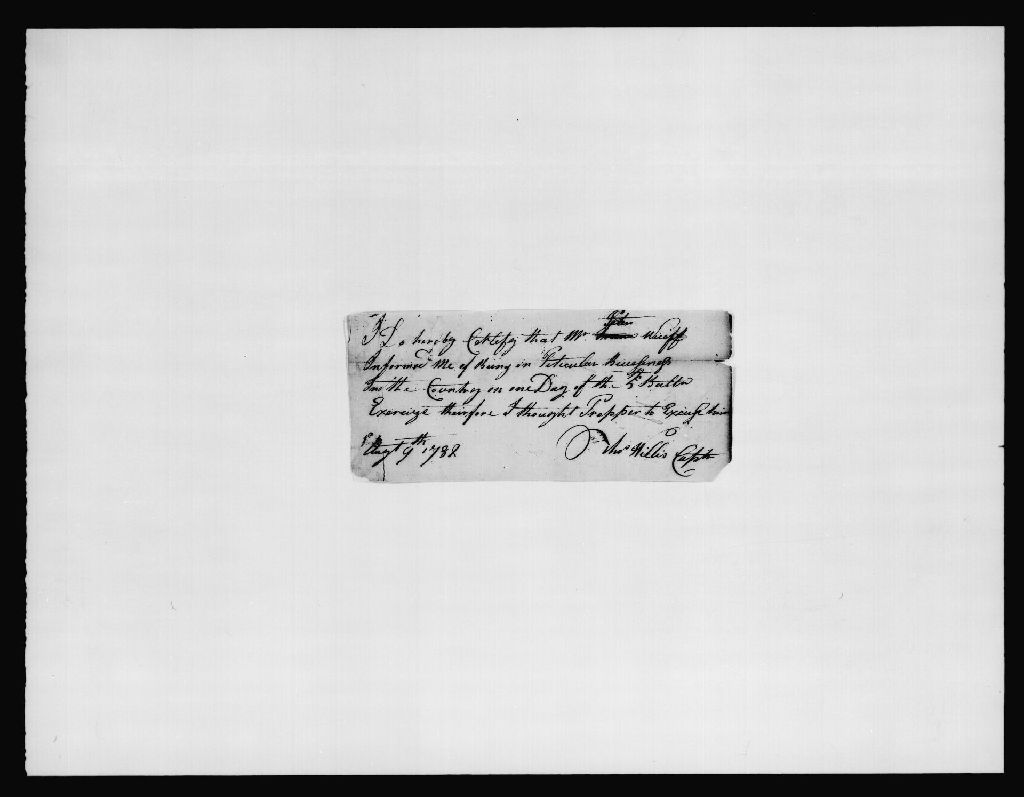 I Do hereby Certefy that Mr Peter
Informed Me of Being in Peticular Beuseness
In the Country on one Day of the 5th Battn
Exercize theirfore I thought Propper to Excuse him
Augt 9th 1782 Thos Willis Captn